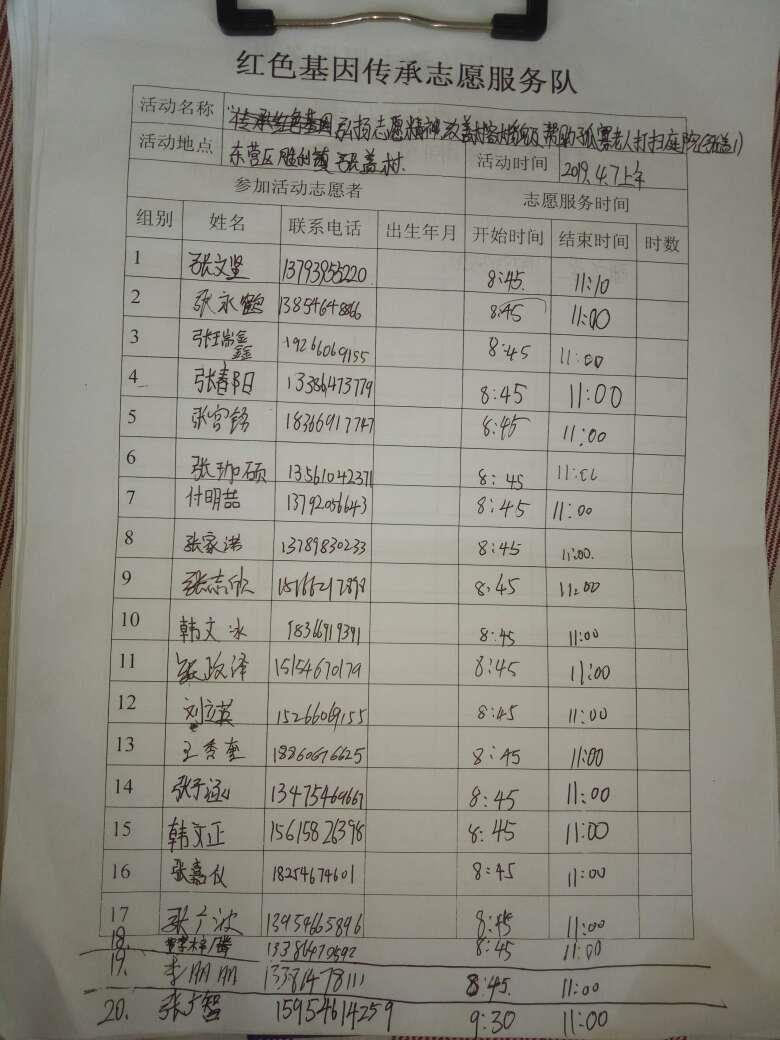 红色基因传承志愿服务队
活动名称 传承红色基因 弘扬志愿精神 帮助孤寡老人打扫庭院(张盖1)
活动地点 东营区胜利镇张盖村 活动时间 2019.4.7上午
参加活动志愿者 志愿服务时间
组别 姓名 联系电话 出生年月 开始时间 结束时间 时数
1 张文坚 13793955220 8:45. 11:10
2 张永鹤 13854648866 8:45 11:00
3 8:45 11:00
4 张春日 13386473779 8:45 11:00
5 张容铭 18366917747 8:45 11:00
6 张珈硕 13561042371 8:45 11:00
7 付明喆 13792056643 8:45 11:00
8 张家洪 13789830233 8:45 11:00.
9 张志欣 15166217898 8:45 11:00
10 韩文冰 18366919391 8:45 11:00
11 张政泽 15154670179 8:45 11:00
12 刘立英 15266069155 8:45 11:00
13 王秀奎 18860676625 8:45 11:00
14 张子涵 13475469667 8:45 11:00
15 韩文正 15615826398 8:45 11:00
16 张嘉仪 18254674601 8:45 11:00
17 张广波 13954665896 8:45 11:00
18. 13386470592 8:45 11:00
19. 李丽丽 13381478111 8:45. 11:00
20. 张广智 15954614259 9:30 11:00